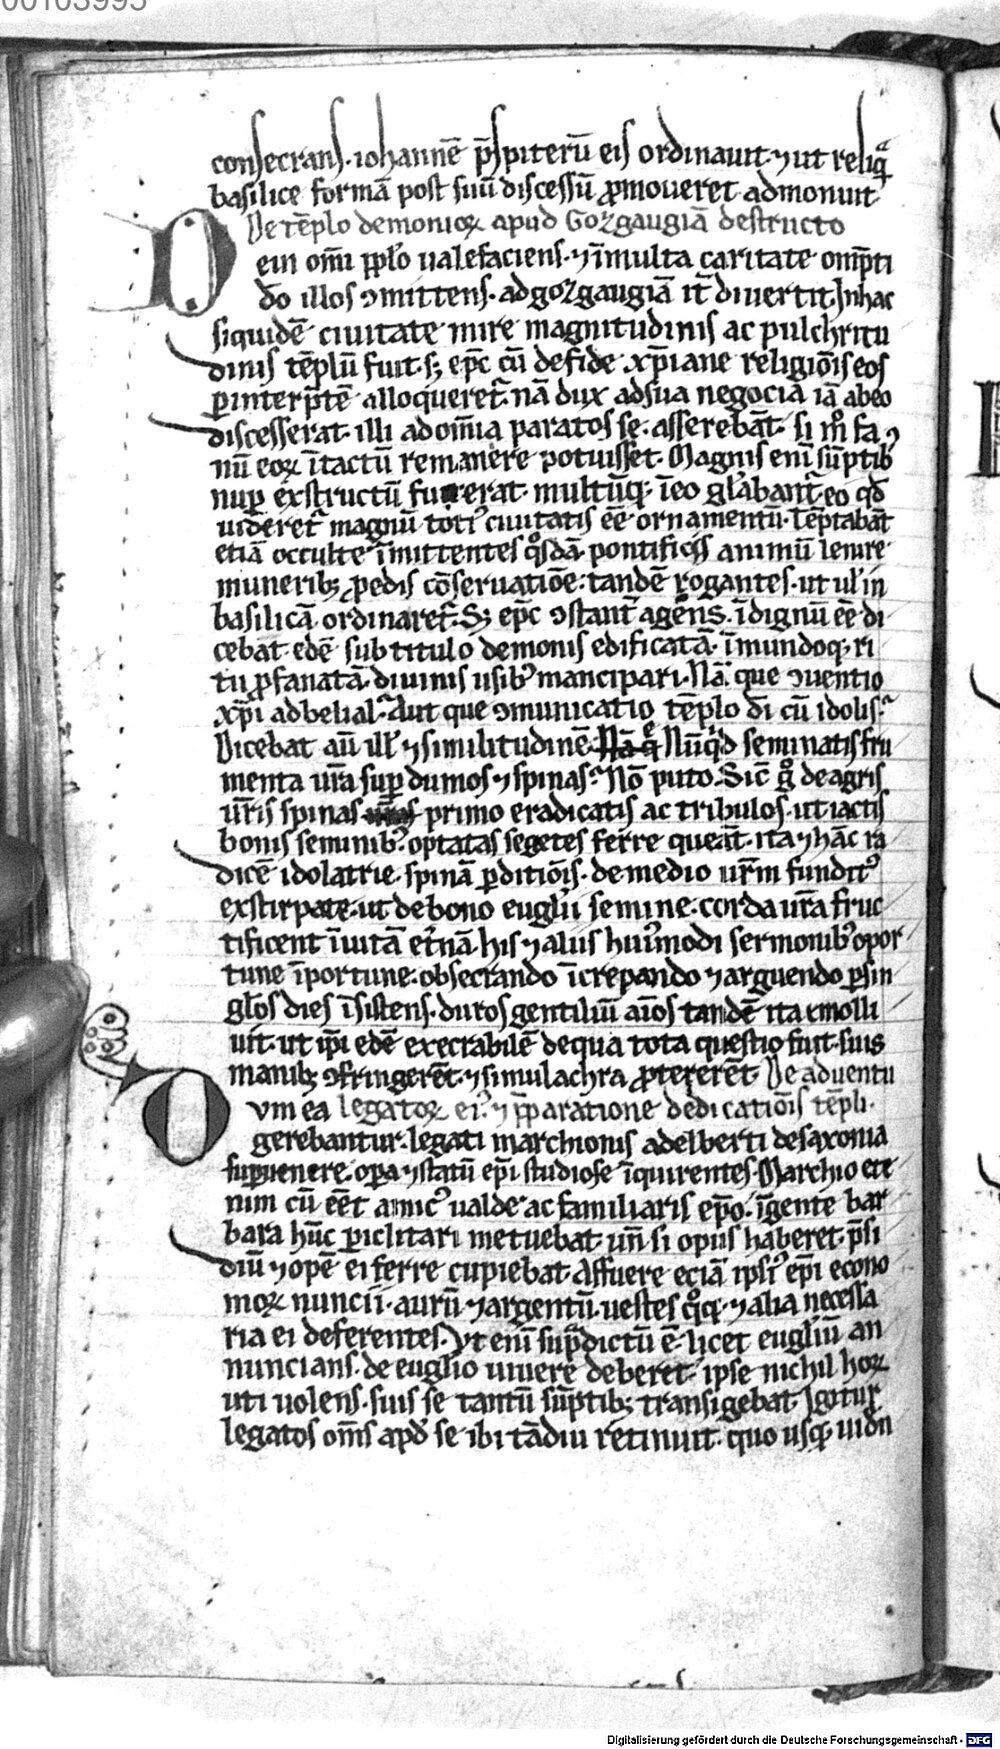 00103993
consecrans. iohannē p̄sbiterū eis ordinauit. ⁊ ut reliqͣ
basilice formā post suū discessū ꝓmoueret admonuit
De tēplo demonioꝝ apud Gozgaugiā destructo
Dein om̄i pp̄lo ualefaciens. ⁊ ī multa caritate omp̄ti
do illos ꝯmittens. ad gozgaugiā it̄ diuertit. In hac
siquidē ciuitate mire magnitudinis ac pulchritu
dinis tēplū fuit. sꝫ ep̄c cū de fide xp̄iane religiōis eos
ꝑ interp̄tē alloqueret̄. nā dux ad sua negocia iā ab eo
discesserat. illi ad om̄ia paratos se. asserebāt. si m̊ fa
nū eoꝝ ītactū remanere potuisset. Magnis enī sūptibꝰ
nuꝑ exstructū fuerat. multūqꝫ ī eo gl̄abant̄. eo qd̄
uideret̄ magnū totiꝰ ciuitatis eē ornamentū. Tēptabāt
etiā occulte īmittentes qͦsdā. pontificis animū lenire
muneribꝫ. ꝓ edis cōseruatiōe. tandē rogantes. ut ul̄ in
basilicā ordinaret̄. Sꝫ ep̄c ꝯstant̄ agens. īdignū eē di
cebat. edē sub titulo demonis edificatā. īmundoqꝫ ri
tu ꝓfanatā. diuinis usibꝰ mancipari. Nā que ꝯuentio
xp̄i ad belial. Aut que ꝯmunicatio tēplo dī cū idolis.
Dicebat aū ill̄ ⁊ similitudinē. Nūqͥd seminatis fru
menta ur̄a suꝑ dumos ⁊ spinas. Nō puto. Sic̄ gͦ de agris
ur̄is spinas primo eradicatis ac tribulos. ut iactis
bonis seminibꝰ. optatas segetes ferre queāt. ita ⁊ hāc ra
dicē idolatrie. spinā ꝑditiōis. de medio ur̄m funditꝰ
exstirpate. ut de bono euglii semine. corda ur̄a fruc
tificent ī uitā et̄nā. his ⁊ aliis huiꝰmodi sermonibꝰ opor
tune īportune. obsecrando īcrepando ⁊ arguendo ꝑ sin
gl̄os dies īsistens. duros gentiliū aīos tandē ita emolli
uit. ut ip̄i edē execrabilē de qua tota questio fuit. suis
manibꝫ ꝯfringerēt. ⁊ simulachra ꝓtererēt. De aduentu
legatoꝝ eiꝰ. ⁊ pͣparatione dedicatiōis tēpli.
Dvm ea
gerebantur. legati marchionis adelberti de saxonia
suꝑuenere. oꝑa ⁊ statū ep̄i studiose īquirentes. Marchio ete
nim cū eēt amicꝰ ualde ac familiaris ep̄o. ī gente bar
bara hūc ꝑiclitari metuebat. un̄ si opus haberet. p̄si
diū ⁊ opē ei ferre cupiebat. Affuere eciā ipsiꝰ ep̄i econo
moꝝ nuncii. aurū ⁊ argentū. uestes qͦqꝫ. ⁊ alia necessa
ria ei deferentes. Vt enī supͣdictū ē. licet eugliū an
nuncians. de euglio uiuere deberet. ipse nichil hoꝝ
uti uolens. suis se tantū sūptibꝫ transigebat. Igitur
legatos om̄s apd̄ se ibi tādiu retinuit. quo usqꝫ uidn̄
Digitalisierung gefördert durch die Deutsche Forschungsgemeinschaft - DFG